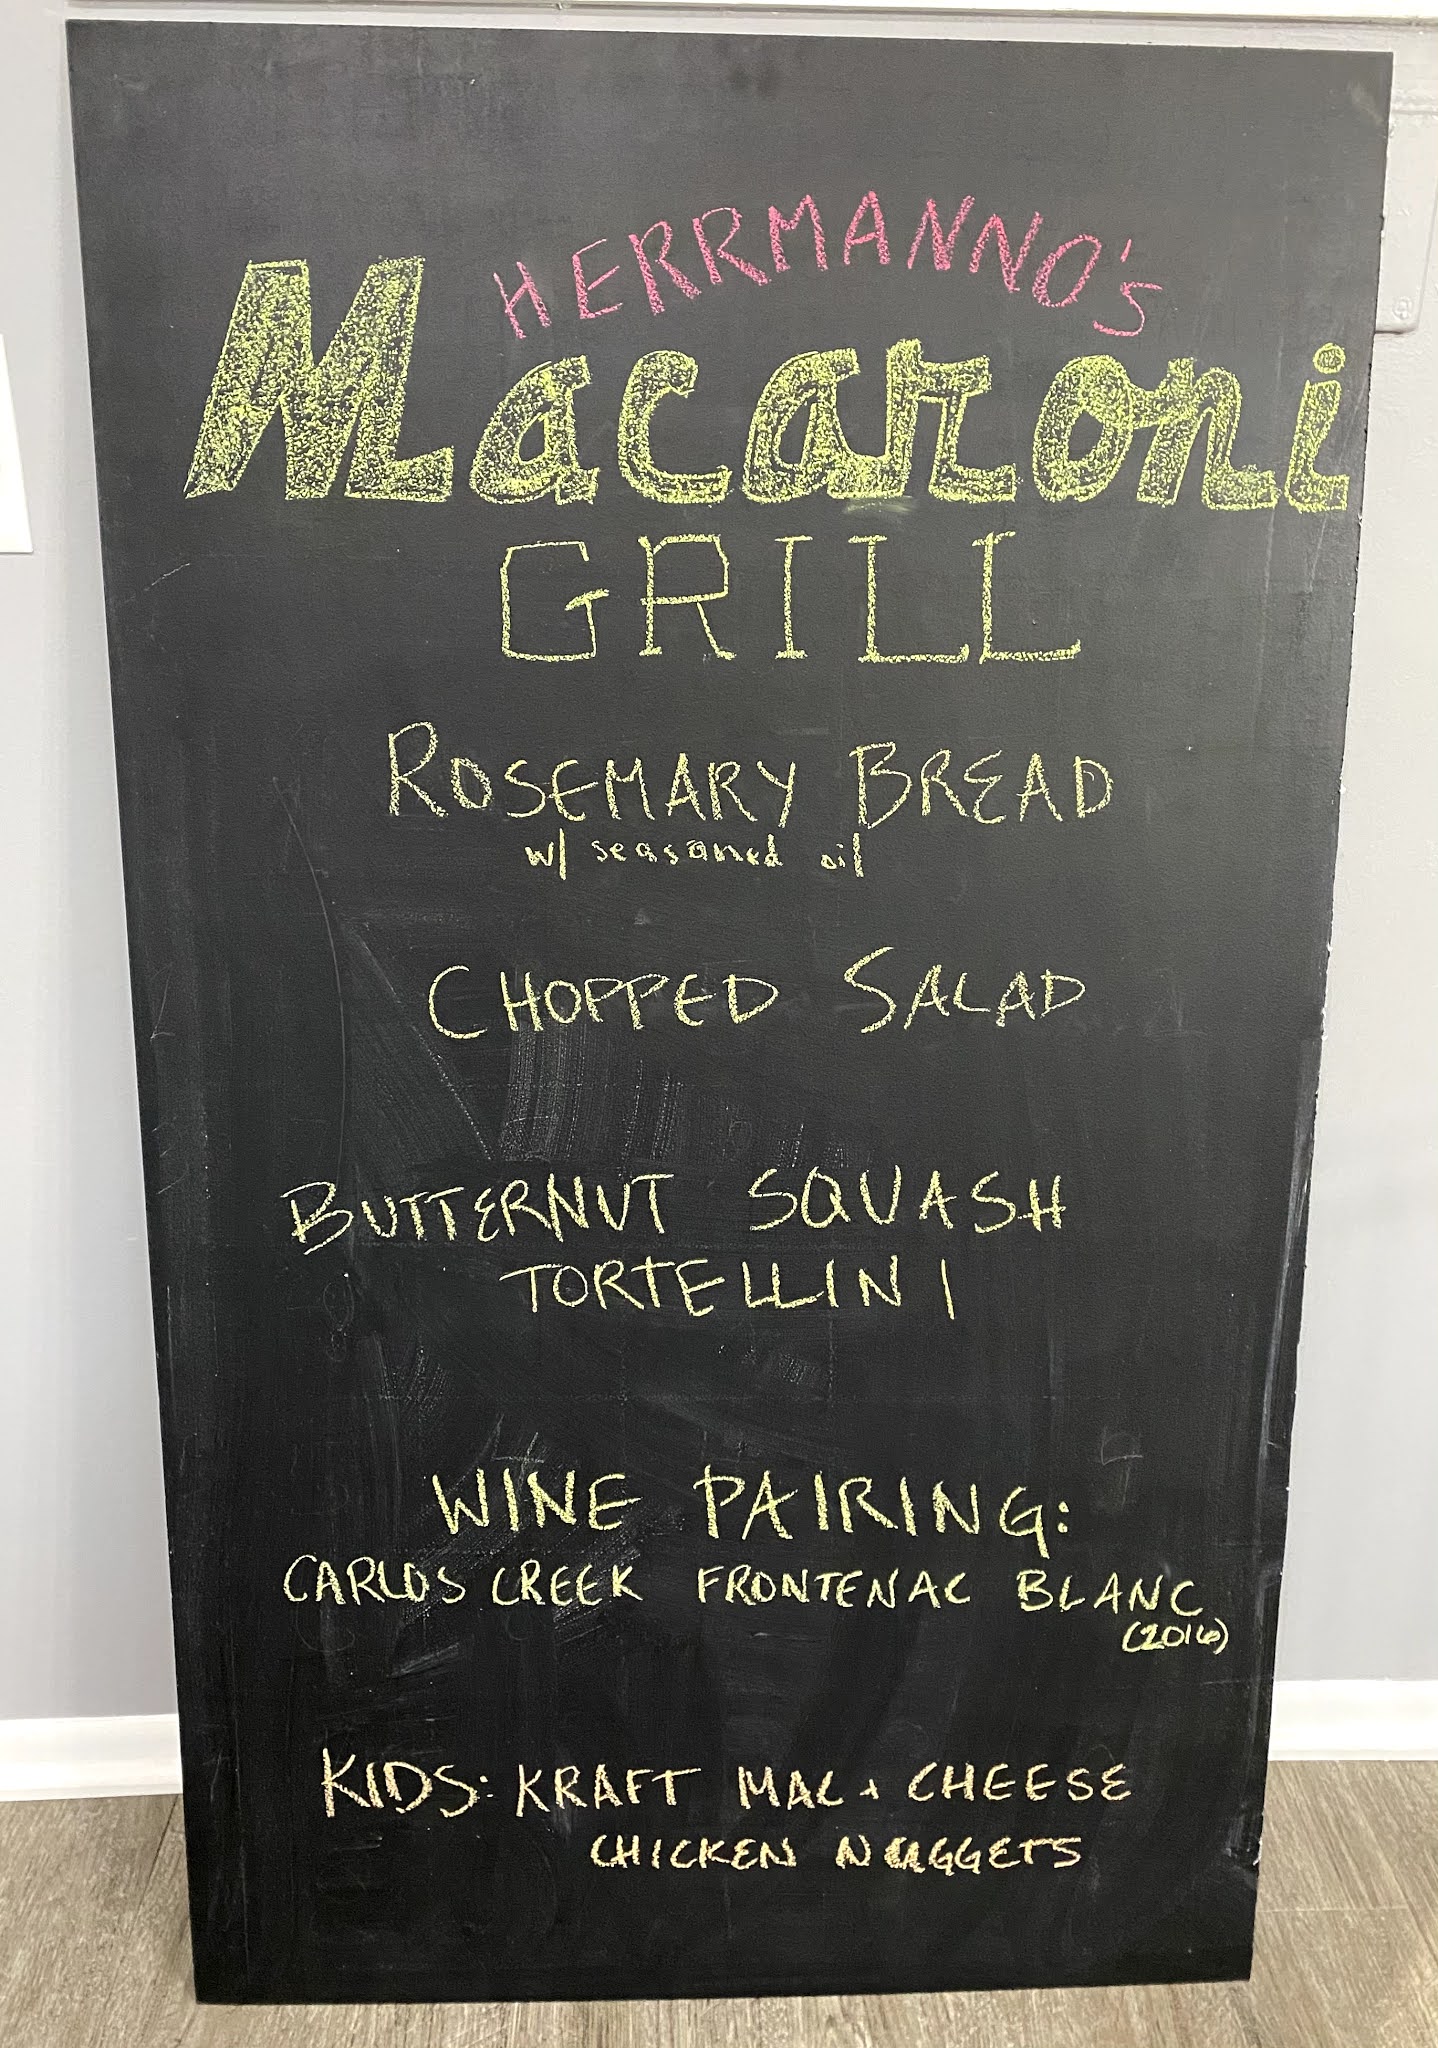 HERRMANNO's
Macaroni
GRILL
ROSEMARY BREAD
w/ seasoned oil
CHOPPED SALAD
BUTTERNUT SQUASH
TORTELLINI
WINE PAIRING:
CARLOS CREEK FRONTENAC BLANC
(2016)
KIDS: KRAFT MAC + CHEESE
CHICKEN NUGGETS